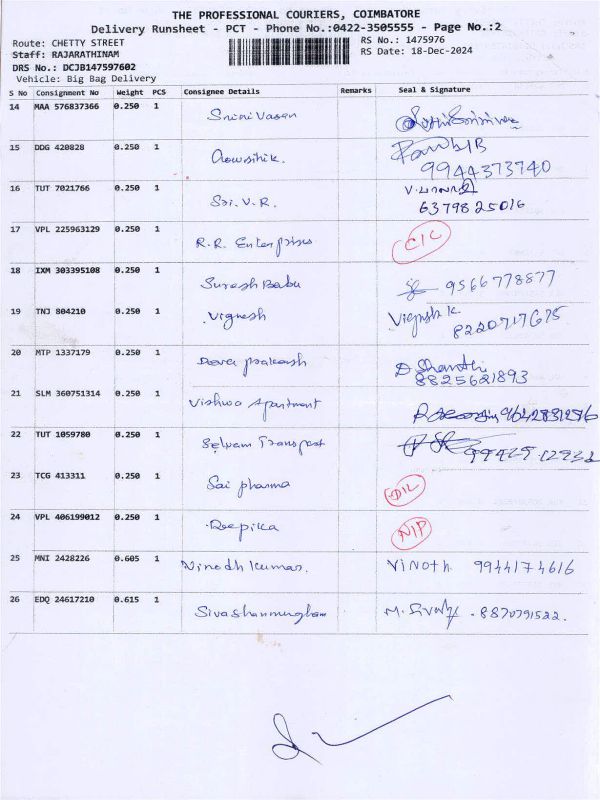 THE PROFESSIONAL COURIERS, COIMBATORE
Delivery Runsheet - PCT - Phone No.:0422-3505555 - Page No.:2
Route: CHETTY STREET RS No.: 1475976
Staff: RAJARATHINAM RS Date: 18-Dec-2024
DRS No.: DCJB147597602
Vehicle: Big Bag Delivery
S No Consignment No Weight PCS Consignee Details Remarks Seal & Signature
14 MAA 576837366 0.250 1 Srinivasan
15 DDG 420828 0.250 1 Gowsihik.
9944373740
16 TUT 7021766 0.250 1 Sri. V.R.
6379825016
17 VPL 225963129 0.250 1 R.R. Enterprises CIC
18 IXM 303395108 0.250 1 Suresh Babu 9566778877
19 TNJ 804210 0.250 1 Vignesh Vignesh K.
8220717675
20 MTP 1337179 0.250 1 Deva prakash D Shanthi
8825621893
21 SLM 360751314 0.250 1 Vishwa Apartment
22 TUT 1059780 0.250 1 Selvam Transport
23 TCG 413311 0.250 1 Sai pharma DIL
24 VPL 406199012 0.250 1 Deepika NIP
25 MNI 2428226 0.605 1 Vinodh kumar. Vinoth. 9944174616
26 EDQ 24617210 0.615 1 Sivashanmugham 8870791522.